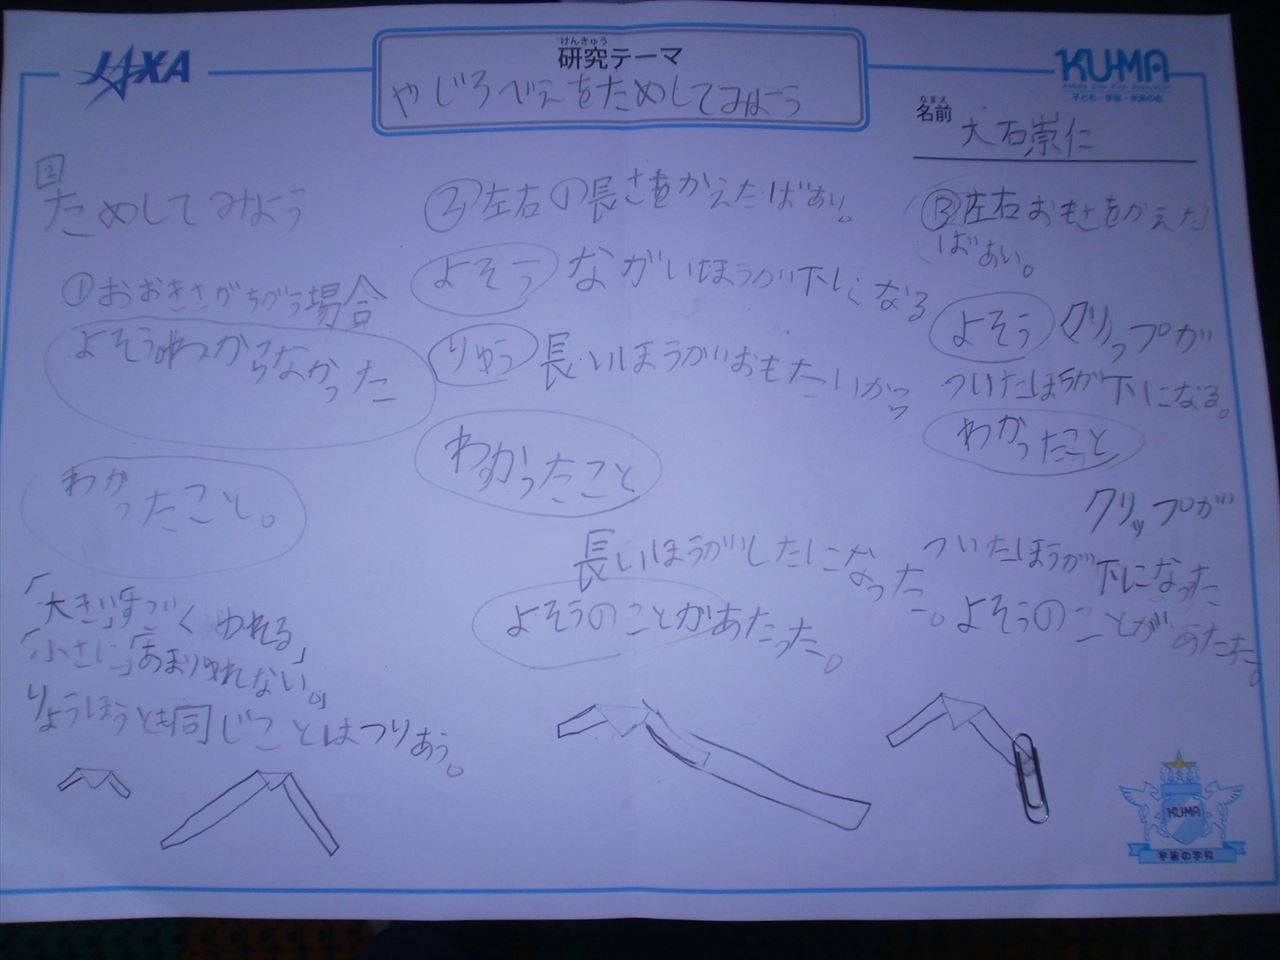 JAXA
けんきゅう
研究テーマ
やじろべえをためしてみよう
KU-MA
子ども・宇宙・未来の会
なまえ
名前
大石崇仁
2
ためしてみよう
①おおきさがちがう場合
よそうわからなかった
わかったこと。
「大きい」「すごくゆれる」
「小さい」「あまりゆれない。」
りょうほうとも同じことはつりあう。
②左右の長さをかえたばあい。
よそう ながいほうが下になる
りゆう 長いほうがおもたいから
わかったこと
長いほうがしたになった。
よそうのことがあたった。
③左右おもさをかえた
ばあい。
よそう クリップが
ついたほうが下になる。
わかったこと
クリップが
ついたほうが下になった
よそうのことがあたった。
KU-MA
宇宙の学校